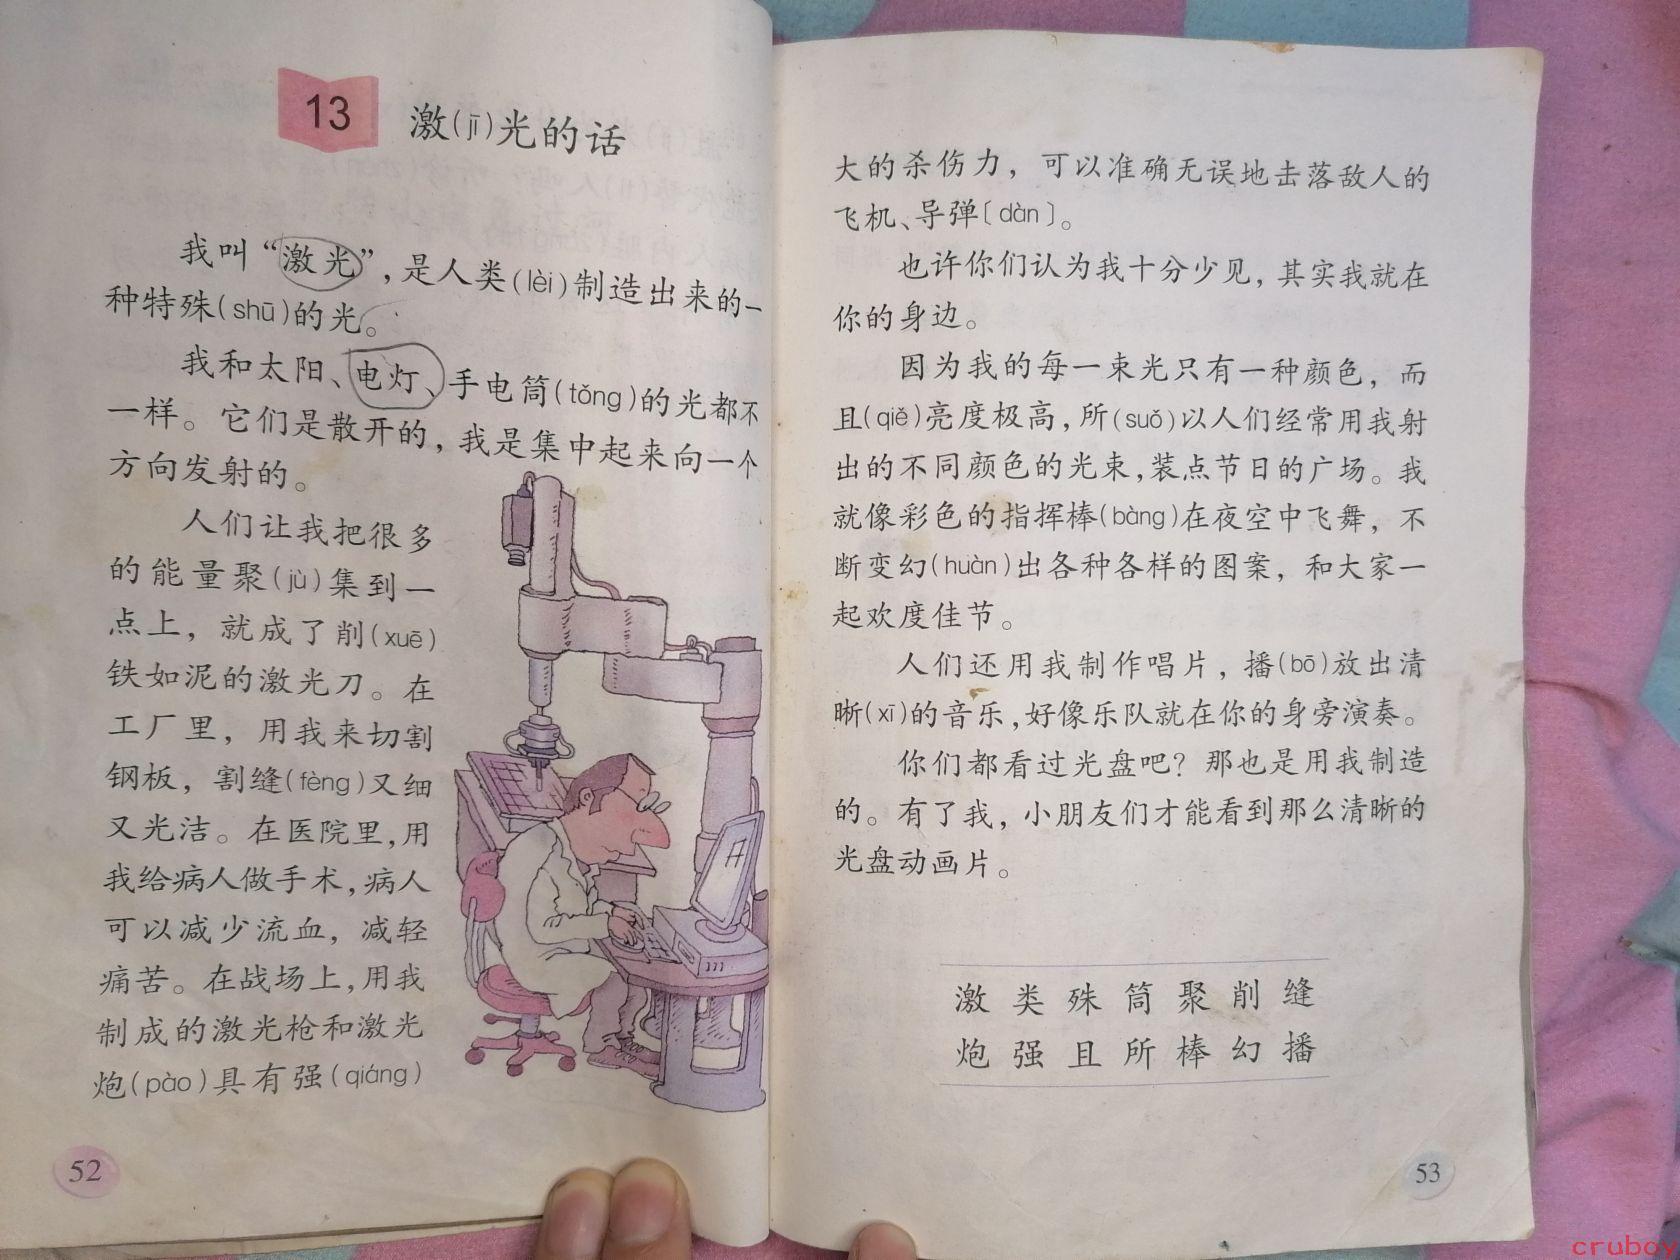 13 激(jī)光的话
我叫“激光”，是人类(lèi)制造出来的一
种特殊(shū)的光。
我和太阳、电灯、手电筒(tǒng)的光都不
一样。它们是散开的，我是集中起来向一个
方向发射的。
人们让我把很多
的能量聚(jù)集到一
点上，就成了削(xuē)
铁如泥的激光刀。在
工厂里，用我来切割
钢板，割缝(fèng)又细
又光洁。在医院里，用
我给病人做手术，病人
可以减少流血，减轻
痛苦。在战场上，用我
制成的激光枪和激光
炮(pào)具有强(qiáng)
52
大的杀伤力，可以准确无误地击落敌人的
飞机、导弹〔dàn〕。
也许你们认为我十分少见，其实我就在
你的身边。
因为我的每一束光只有一种颜色，而
且(qiě)亮度极高，所(suǒ)以人们经常用我射
出的不同颜色的光束，装点节日的广场。我
就像彩色的指挥棒(bàng)在夜空中飞舞，不
断变幻(huàn)出各种各样的图案，和大家一
起欢度佳节。
人们还用我制作唱片，播(bō)放出清
晰(xī)的音乐，好像乐队就在你的身旁演奏。
你们都看过光盘吧？那也是用我制造
的。有了我，小朋友们才能看到那么清晰的
光盘动画片。
激 类 殊 筒 聚 削 缝
炮 强 且 所 棒 幻 播
53
cruboy